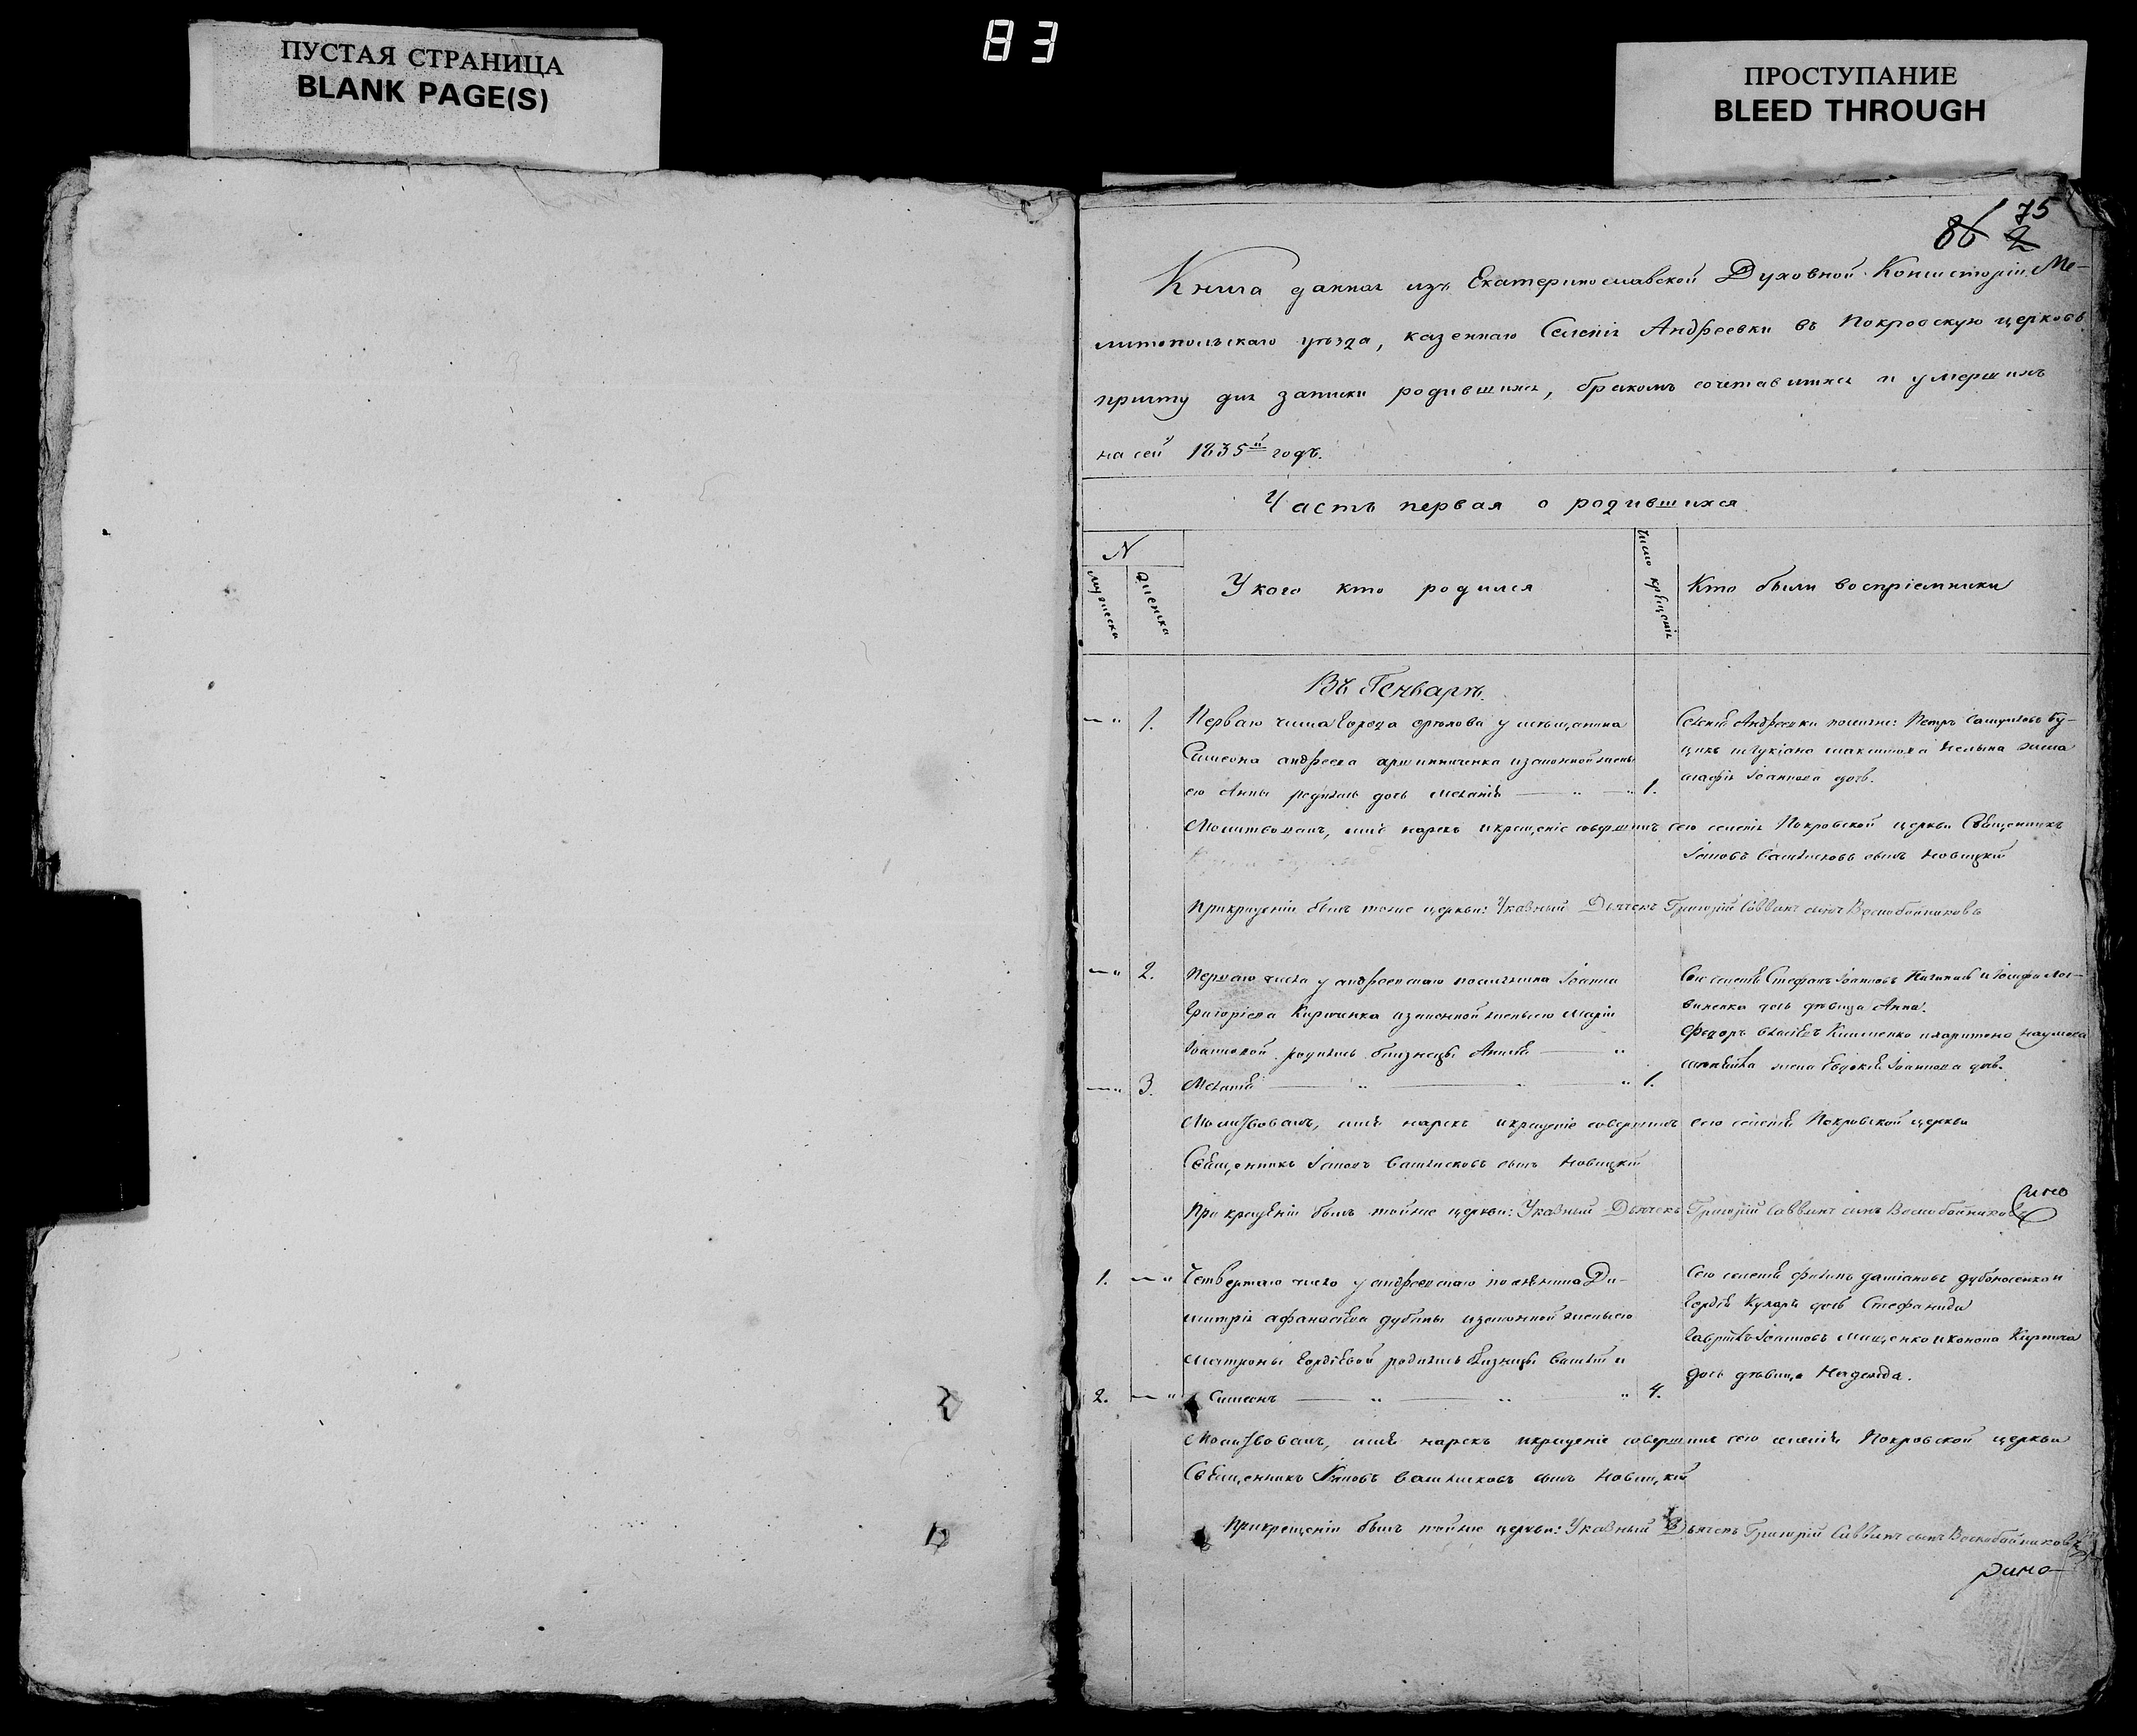 ПУСТАЯ СТРАНИЦА
BLANK PAGE(S)
83
ПРОСТУПАНИЕ
BLEED THROUGH
75
86 2
Книга данная изъ Екатеринославской Духовной Консисторіи Ме-
литопольскаго уѣзда, казеннаго Селенія Андреевки въ Покровскую церковь
причту для записки родившихся, бракомъ сочетавшихся и умершихъ
на сей 1835й годъ.
Часть первая о родившихся
N
мужеска
женска
У кого кто родился
число крещенія
Кто были воспріемники
Въ Генварѣ.
1. Перваго числа города орѣхова у мѣщанина
Симеона андреева изаконной жены
его Анны родилась дочь Меланія 1.
Селенія Андреевки поселяне: Петръ
Іоаннова дочь.
Молитвовалъ, имя нарекъ и крещеніе совершилъ сего селенія Покровской церкви Священникъ
Іаковъ Васильевъ сынъ Новицкій
При крещеніи былъ тойже церкви: Указный Дьячекъ Григорій Саввинъ сынъ Воскобойниковъ
2. Перваго числа у андреевскаго поселянина Іоанна
Григоріева Кириченка изаконной жены его Маріи
Іоанновой родились близнецы
Сего селенія Стефанъ Іоанновъ
дочь дѣвица Анна.
Федоръ Клименко Наумова
жена Евдокія Іоаннова дочь.
3. Меланія 1.
Молитвовалъ, имя нарекъ и крещеніе совершилъ сего селенія Покровской церкви
Священникъ Іаковъ Васильевъ сынъ Новицкій
При крещеніи былъ тойже церкви: Указный Дьячекъ Григорій Саввинъ сынъ Воскобойниковъ
1. Четвертаго числа у андреевскаго поселянина Ди-
митрія афанасіева дубины изаконной жены его
Матроны Гордіевой родились близнецы Василій и
2. Симеонъ 4.
Сего селенія даміановъ
Гордія дочь Стефанида
Гавріилъ Іоанновъ Мищенко
дочь дѣвица Надежда.
Молитвовалъ, имя нарекъ и крещеніе совершилъ сего селенія Покровской церкви
Священникъ Іаковъ Васильевъ сынъ Новицкій
При крещеніи былъ тойже церкви: Указный Дьячекъ Григорій Саввинъ сынъ Воскобойниковъ